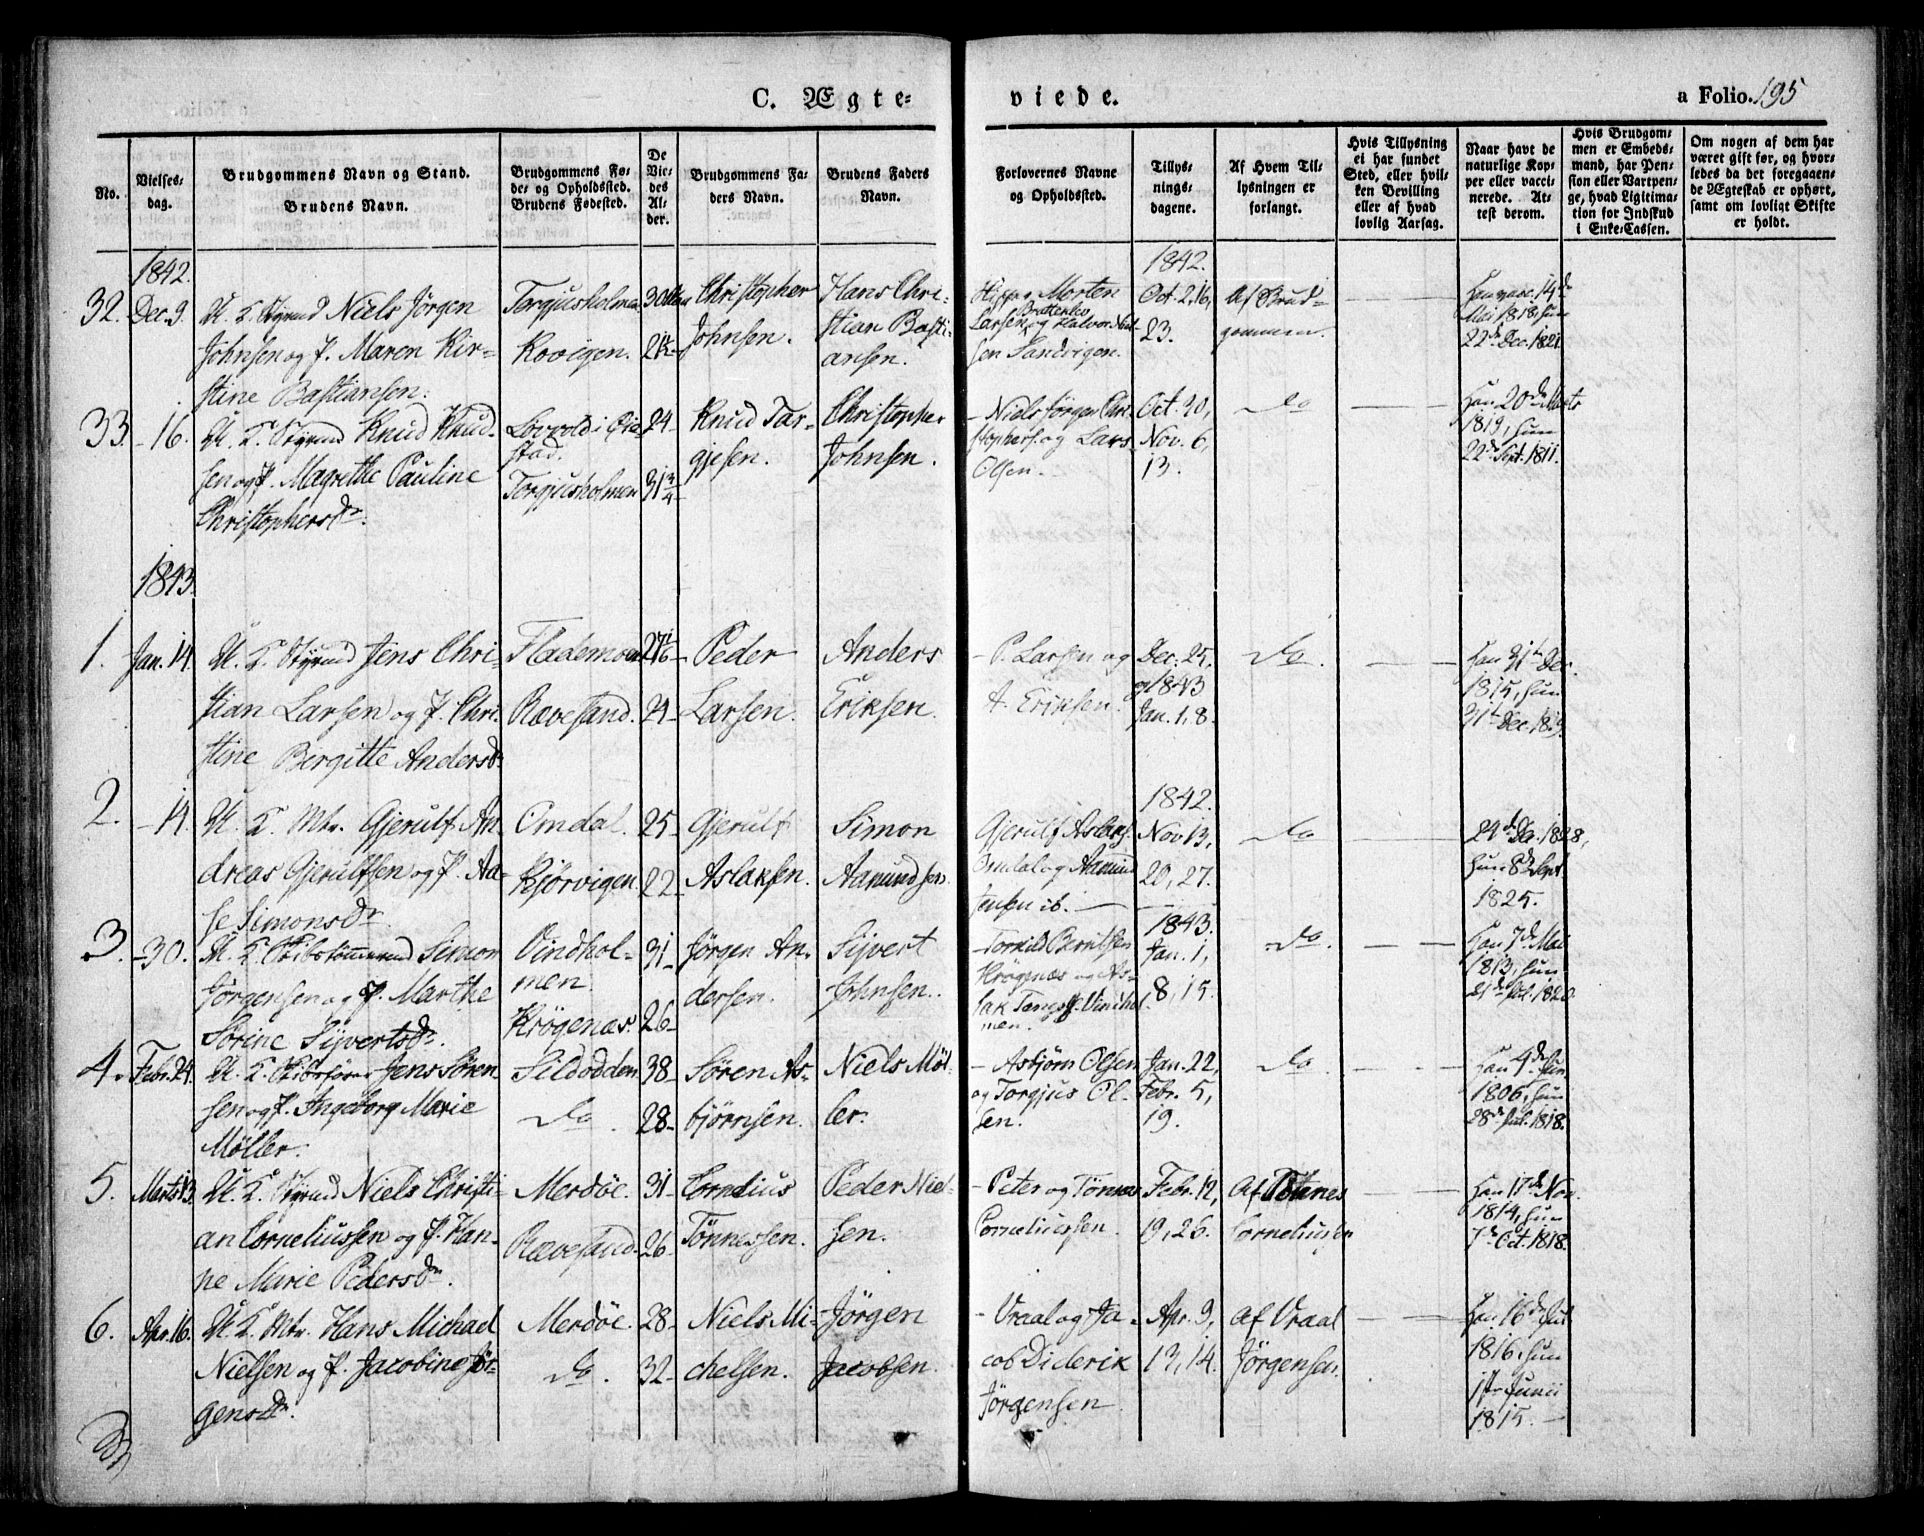 C. Ægte=
viede.
a Folio. 195
No.
Vielses-
dag.
Brudgommens Navn og Stand.
Brudens Navn.
Brudgommens Fø-
de- og Opholdssted.
Brudens Fødested.
De
Vie-
des
Al-
der.
Brudgommens Fa-
ders Navn.
Brudens Faders
Navn.
Forlovernes Navne
og Opholdssted.
Tillys-
nings-
dagene.
Af Hvem Til-
lysningen er
forlangt.
Hvis Tillysning
ei har fundet
Sted, eller hvil-
ken Bevilling
eller af hvad
lovlig Aarsag.
Naar havt de
naturlige Kop-
per eller vacci-
nerede. At-
test derom.
Hvis Brudgom-
men er Embeds-
mand, har Pen-
sion eller Vartpen-
ge, hvad Ligitima-
tion for Indskud
i Enke-Cassen.
Om nogen af dem har
været gift før, og hvor-
ledes da det foregaaen-
de Ægteskab er ophørt,
samt om lovligt Skifte
er holdt.
1842.
32. Dec. 9.
U. K. Niels Jörgen
Johnsen og P. Maren Kir-
stine Bastiansen.
Torgjusholmen
Kovigen.
30
Christopher
Johnsen.
Hans Chri-
stian Basti-
ansen.
Morten
Brattekley
Larsen og Halvor
sen Sandvigen.
1842.
Oct. 2, 16,
23.
Af Brud-
gommen.
14de
Mai 1818, hun
22de Dec. 1821.
33. -16.
U. K. Knud Knud-
sen og P. Magrethe Pauline
Christophersdr.
Lovvold i
stad.
Torgjusholmen
24
31 3/4
Knud Tar-
gjesen.
Christopher
Johnsen.
- Niels Jörgen Chri-
stophers. og Lars
Olsen.
Oct. 30,
Nov. 6,
13.
do
Han 20de Marts
1819, hun
22de Sept. 1811.
1843.
1. Jan. 14.
U. K. Jens Chri-
stian Larsen og P. Chri-
stine Birgitte Andersdr
Flademoen
Rævesand.
27
24
Peder
Larsen.
Anders
Eriksen.
- P. Larsen og
A. Eriksen.
Dec. 25,
og 1843
Jan. 1, 8.
do.
Han 31te Dec.
1815, hun
31te Dec. 1819.
2. -14.
U. K. Mtr. Gjerulf An-
dreas Gjerulfsen og P. Aa-
se Simonsdr.
Omdal.
Kjörvigen.
25
22
Gjerulf
Aslaksen.
Simon
Aamundsen.
Gjerulf Aslaks.
Omdal og Aamund
Jensen ib.
1842.
Nov 13,
20, 27.
do
24de Dec. 1828,
hun 8de Sept
1825.
3. -30.
U. K. Skibstömmermd Simon
Jörgensen og P. Marthe
Sörine Sijvertsdr.
Vindhol-
men.
Krögenæs.
31
26
Jörgen An-
dersen.
Sijvert
Johnsen.
Berntsen
Krögenæs og As-
lak Vindhol-
men.
1843.
Jan. 1,
8, 15.
do.
Han 7de Mai
1813, hun
21de Jul. 1820.
4. Febr. 24.
U. K. Jens Sören-
sen og P. Ingeborg Marie
Möller.
Sildodden
do.
38
28
Sören As-
björnsen.
Niels Möl-
ler.
- Asbjörn Olsen
og Torgjus Ol-
sen.
Jan. 22,
Febr. 5,
19.
do
Han 4de Jun
1806, hun
28de Jul. 1818.
5. Marts 13.
U. K. Niels Christi-
an Corneliussen og P. Han-
ne Marie Pedersdr.
Merdöe.
Rævesand.
31
26
Cornelius
Tönnessen.
Peder Niel-
sen.
- Peter og Tönnes
Corneliussen.
Febr. 12,
19, 26.
Af Tönnes
Corneliussen
Han 17de Nov.
1814, hun
7de Oct. 1818.
6. Apr. 16.
U. K. Mtr. Hans Michael
Nielsen og P. Jacobine Jör-
gensdr.
Merdöe.
do.
28
32
Niels Mi-
chelsen.
Jörgen
Jacobsen
- Vraal og Ja-
cob Diderik
Jörgensen
Apr. 9,
13, 14.
Af Vraal
Jörgensen.
Han 16de Jul
1816, hun
1ste Junii
1815.